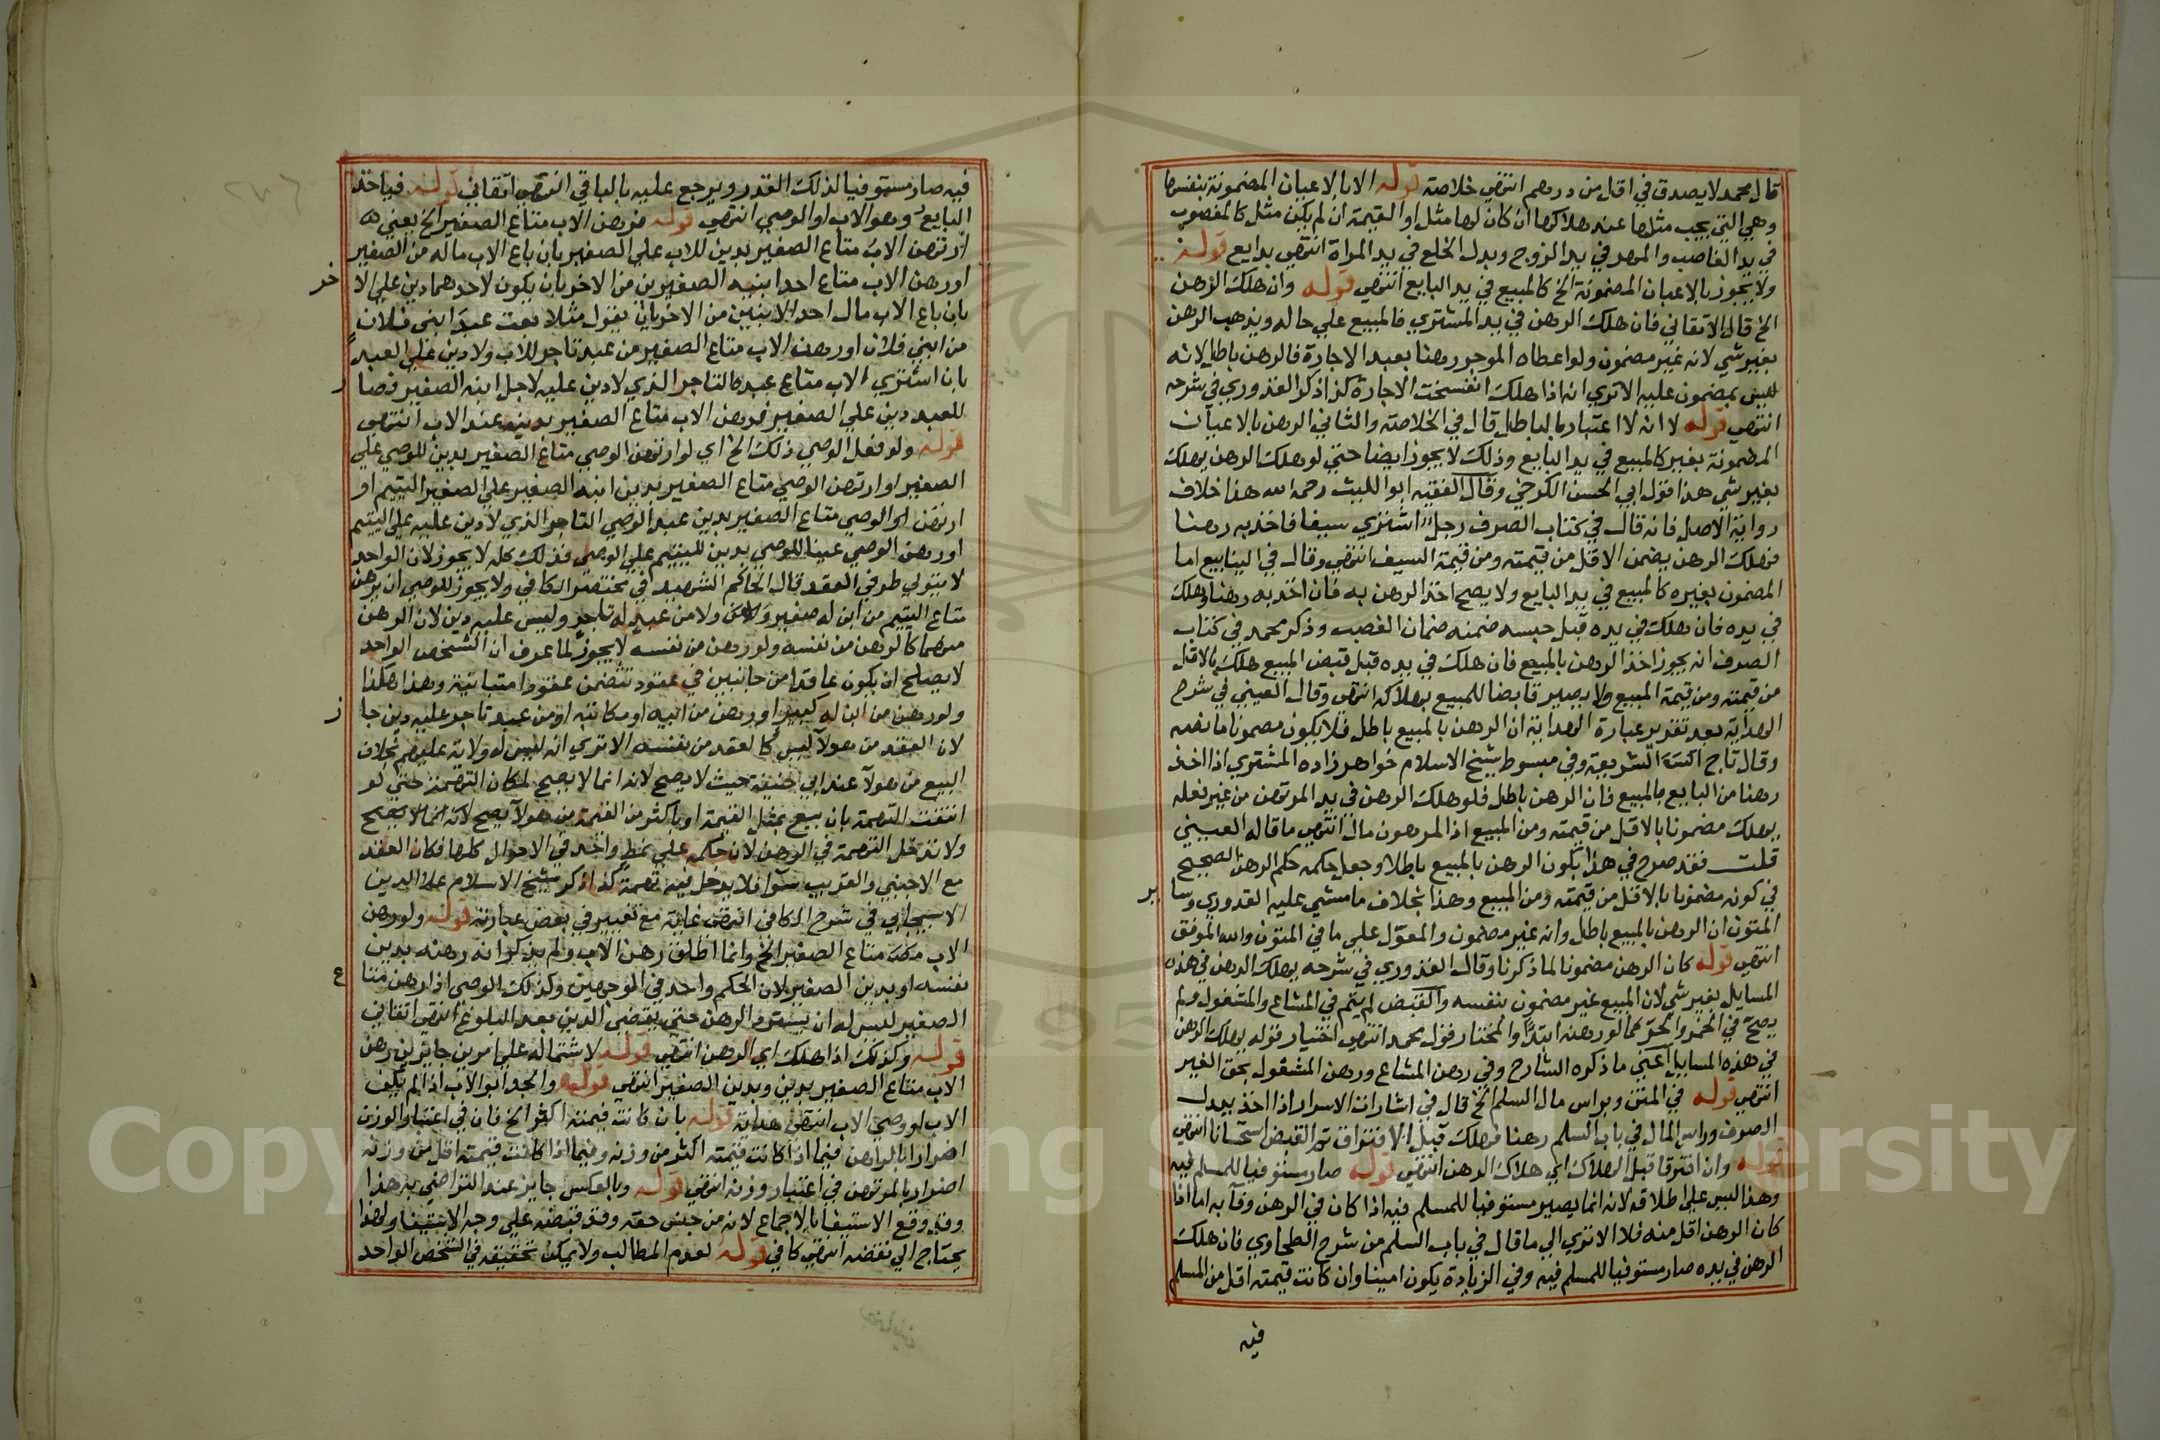 قال محمد لا يصدق في اقل من درهم انتهى خلاصة قوله الا بالاعيان المضمونة بنفسها
وهي التي يجب مثلها عند هلاكها ان كان لها مثل او القيمة ان لم يكن مثل كالمغصوب
في يد الغاصب والمهر في يد الزوج وبدل الخلع في يد المراة انتهى بدايع قوله
ولا يجوز بالاعيان المضمونة الخ كالمبيع في يد البايع انتهى قوله وان هلك الرهن
الخ قال الاتقاني فان هلك الرهن في يد المشتري فالمبيع علي حاله ويذهب الرهن
بغير شي لانه غير مضمون ولو اعطاه الموجر رهنا بعبد الاجارة فالرهن باطل لانه
ليس بمضمون عليه الا تري انه اذا هلك انفسخت الاجارة كذا ذكر القدوري في شرحه
انتهى قوله لانه لا اعتبار بالباطل قال في الخلاصة والثاني الرهن بالاعيان
المضمونة بغير كالمبيع في يد البايع وذلك لا يجوز ايضا حتي لو هلك الرهن يهلك
بغير شي هذا قول ابي الحسن الكرخي وقال الفقيه ابو الليث رحمه الله هذا خلاف
رواية الاصل فانه قال في كتاب الصرف رجل اشتري سيفا فاخذ به رهنا
فهلك الرهن يضمن الاقل من قيمته ومن قيمة السيف انتهى وقال في الينابيع اما
المضمون بغيره كالمبيع في يد البايع ولا يصح اخذ الرهن به فان اخذ به رهنا وهلك
في يده فان هلك في يده قبل حبسه ضمنه ضمان الغصب وذكر محمد في كتاب
الصرف انه يجوز اخذ الرهن بالمبيع فان هلك في يده قبل قبض المبيع هلك بالاقل
من قيمته ومن قيمة المبيع ولا يصير قابضا للمبيع بهلاكه انتهى وقال العيني في شرح
الهداية بعد تقرير عبارة الهداية ان الرهن بالمبيع باطل فلا يكون مضمونا ما نصه
وقال تاج الشريعة وفي مبسوط شيخ الاسلام خواهر زاده المشتري اذا اخذ
رهنا من البايع بالمبيع فان الرهن باطل فلو هلك الرهن في يد المرتهن من غير فعله
يهلك مضمونا بالاقل من قيمته ومن المبيع اذ المرهون مال انتهى ما قاله العيني
قلت فقد صرح في هذا بكون الرهن بالمبيع باطلا وجعل حكمه حكم الرهن الصحيح
في كونه مضمونا بالاقل من قيمته ومن المبيع وهذا بخلاف ما مشي عليه القدوري وسا
ير
المتون ان الرهن بالمبيع باطل وانه غير مضمون والمعول علي ما في المتون والله الموفق
انتهى قوله كان الرهن مضمونا لما ذكرنا وقال القدوري في شرحه يهلك الرهن في هذه
المسايل بغير شي لان المبيع غير مضمون بنفسه والقبض لم يتم في المشاع والمشغول ولم
يصح في الخمر والحر كما لو رهنه ابتداء والمختار قول محمد انتهى اختيار قوله يهلك الرهن
في هذه المسايل اعني ما ذكره الشارح وفي رهن المشاع ورهن المشغول بحق الغير
انتهى قوله في المتن وبراس مال السلم الخ قال في اشارات الاسرار اذا اخذ ببدل
الصرف وراس المال في باب السلم رهنا فهلك قبل الافتراق تم القبض استحسانا انتهى
قوله وان افترقا قبل الهلاك اي هلاك الرهن انتهى قوله صار مستوفيا للمسلم فيه
وهذا ليس علي اطلاقه لانه انما يصير مستوفيا للمسلم فيه اذا كان في الرهن وفا به اما اذا
كان الرهن اقل منه فلا الا تري الي ما قال في باب السلم من شرح الطحاوي فان هلك
الرهن في يده صار مستوفيا للمسلم فيه وفي الزيادة يكون امينا وان كانت قيمته اقل من المسلم
فيه
فيه صار مستوفيا لذلك القدر ويرجع عليه بالباقي انتهى اتقاني قوله فياخذ
البايع وهو الاب او الوصي انتهى قوله فرهن الاب متاع الصغير الخ يعني
ارتهن الاب متاع الصغير بدين للاب علي الصغير بان باع الاب ماله من الصغير
او رهن الاب متاع احد ابنيه الصغيرين من الاخر بان يكون لاحدهما دين علي الا
خر
بان باع الاب مال احد الابنين من الاخر بان يقول مثلا بعت عبد ابني فلان
من ابني فلان او رهن الاب متاع الصغير من عبد تاجر للاب ولا دين علي العبد
بان اشتري الاب متاع عبده التاجر الذي لا دين عليه لاجل ابنه الصغير فصا
ر
للعبد دين علي الصغير فرهن الاب متاع الصغير بدينه عند الاب انتهى
قوله ولو فعل الوصي ذلك الخ اي لو ارتهن الوصي متاع الصغير بدين للوصي علي
الصغير او ارتهن الوصي متاع الصغير بدين ابنه الصغير علي الصغير اليتيم او
ارتهن الوصي متاع الصغير بدين عبد الوصي التاجر الذي لا دين عليه علي اليتيم
او رهن الوصي عينا للوصي بدين لليتيم علي الوصي فذلك كله لا يجوز لان الواحد
لا يتولي طرفي العقد قال الحاكم الشهيد في مختصر الكافي ولا يجوز للوصي ان يرهن
متاع اليتيم من ابن له صغير ولا من عبد له تاجر وليس عليه دين لان الرهن
منهما كالرهن من نفسه ولو رهن من نفسه لا يجوز لما عرف ان الشخص الواحد
لا يصلح ان يكون عاقدا من جانبين في عقود تتضمن عقودا متباينة وهذا هكذا
ولو رهن من ابن له كبير او رهن من ابيه او مكاتبه او من عبد تاجر عليه دين جا
ز
لان العقد من هولا ليس كالعقد من نفسه الا تري انه ليس له ولاية عليهم بخلاف
البيع من هولا عند ابي حنيفة حيث لا يصح لانه انما لا يصح لمكان التهمة حتي لو
انتفت التهمة بان يبيع بمثل القيمة او باكثر من القيمة من هولا يصح لانه انما لا يصح
ولا تدخل التهمة في الرهن لان حكمه علي نمط واحد في الاحوال كلها فكان العقد
مع الاجنبي والقريب سوا فلا يدخل فيه تهمة كذا ذكر شيخ الاسلام علا الدين
الاسبيجابي في شرح الكافي انتهى غاية مع تغيير في بعض عبارته قوله ولو رهن
الاب متاع الصغير الخ وانما اطلق رهن الاب ولم يذكر انه رهنه بدين
نفسه او بدين الصغير لان الحكم واحد في الموجبين وكذلك الوصي اذا رهن متا
ع
الصغير ليس له ان يسترد الرهن حتي يقضي الدين بعد البلوغ انتهى اتقاني
قوله وكذلك اذا هلك اي الرهن انتهى قوله لاشتماله علي امرين جايزين رهن
الاب متاع الصغير بدين وبدين الصغير انتهى قوله والجد ابو الاب اذا لم يكن
الاب او وصي الاب انتهى هداية قوله بان كانت قيمته اكثر الخ فان في اعتبار الوزن
اضرارا بالراهن فيما اذا كانت قيمته اكثر من وزنه وفيما اذا كانت قيمته اقل من وزنه
اضرار بالمرتهن في اعتبار وزنه انتهى قوله وبالعكس جايز عند التراضي به هذا
وقد وقع الاستيفا بالاجماع لانه من جنس حقه وفي قبضه علي وجه الاستيفا ولهذا
يحتاج الي نقضه انتهى كافي قوله لعدم المطالب ولا يمكن تحقيقه في الشخص الواحد
Copy ng S ersity
195